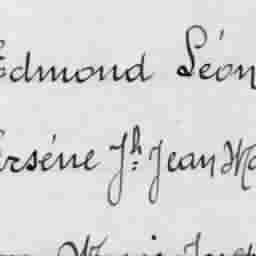 Edmond Léon
Arsène Jh: Jean Ma